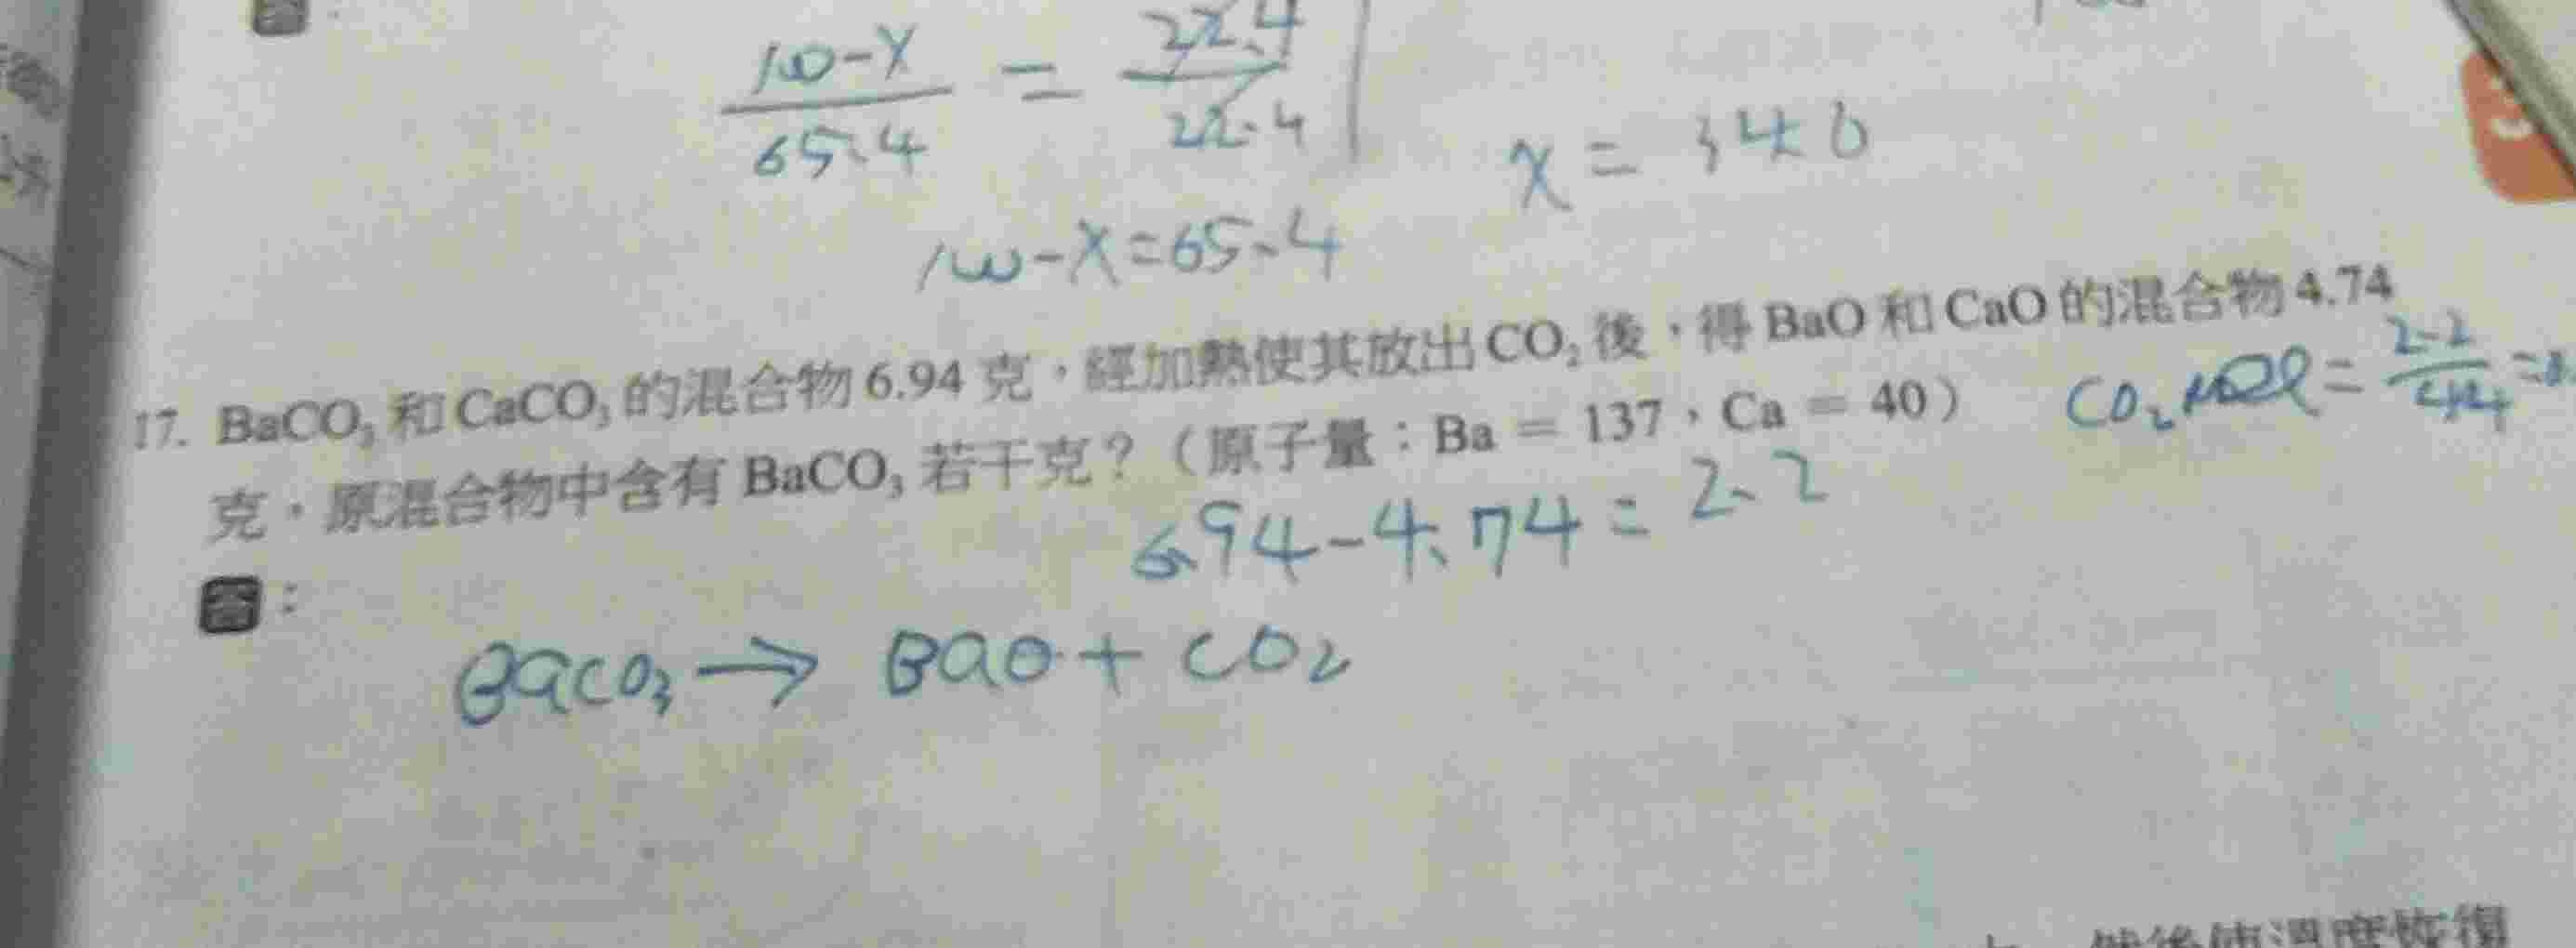 答:
10-x/65.4 = 22.4/22.4
x = 34.6
100-x=65.4
17. BaCO₃和CaCO₃的混合物6.94克,經加熱使其放出CO₂後,得BaO和CaO的混合物4.74
克,原混合物中含有BaCO₃若干克?(原子量:Ba = 137,Ca = 40)
CO₂ mol = 2.2/44 = 0.
6.94-4.74=2.2
答:
BaCO₃ → BaO + CO₂
然後使溫度恢復